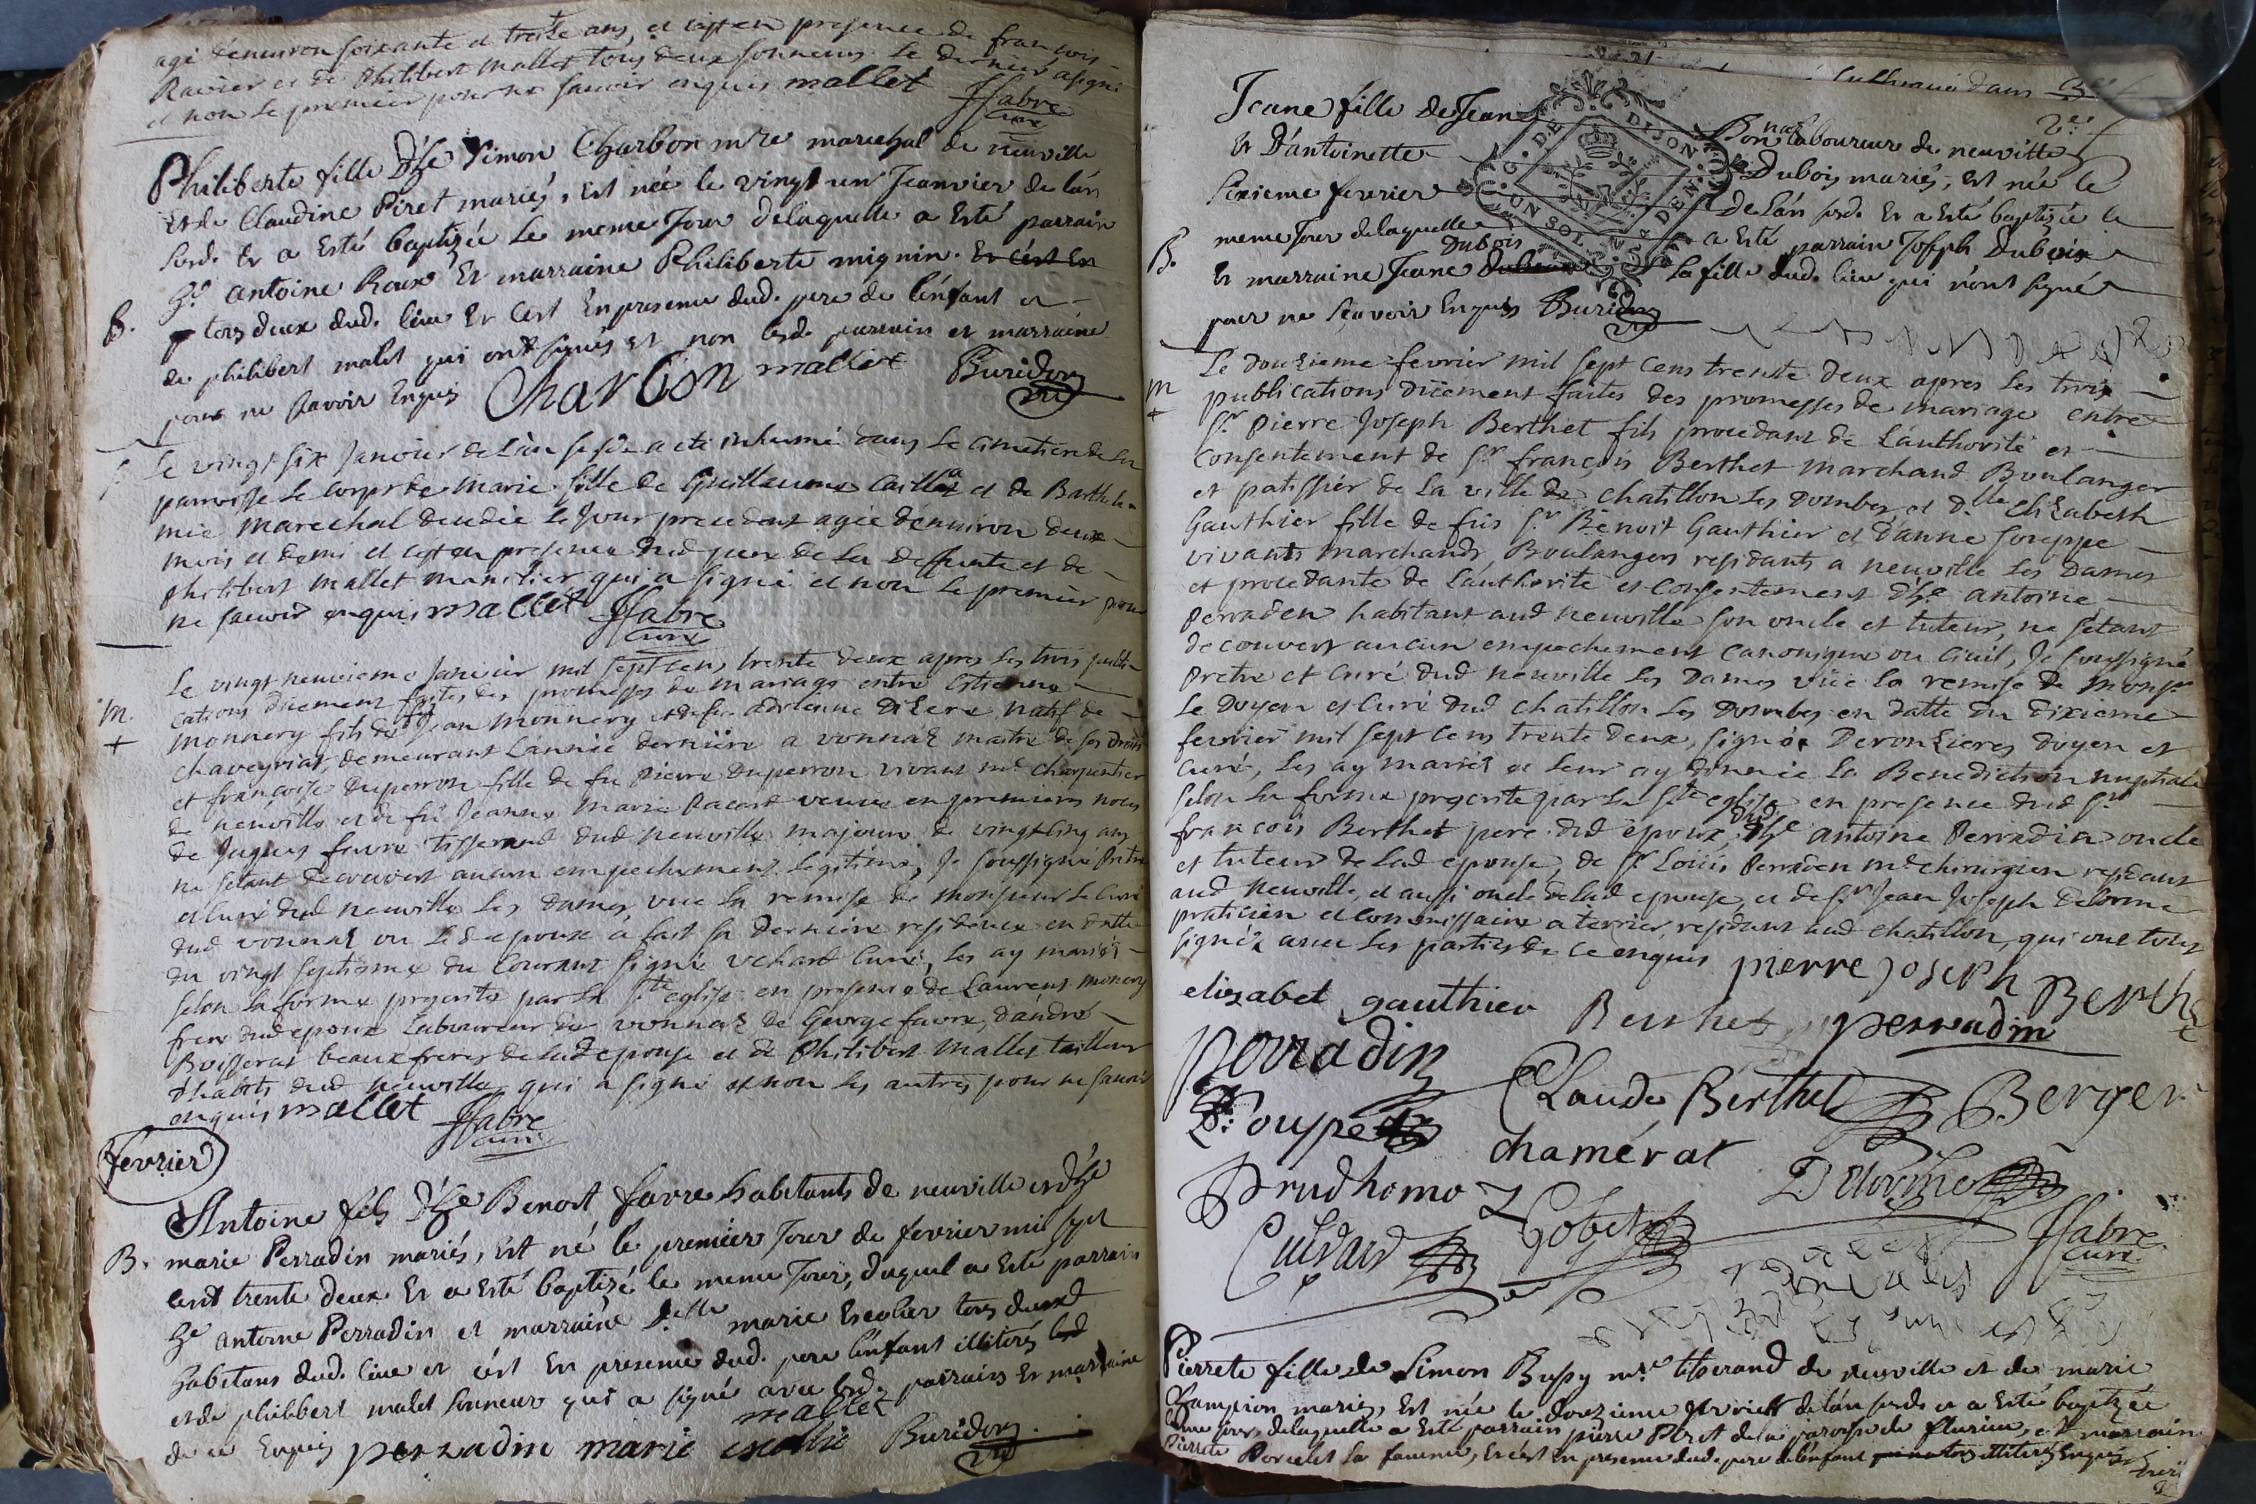 agé denuiron soixante et treize ans, et cest en presence de francois
Ravier et de Philibert Mallet tous deux sonneurs. Le dernier a signé
et non le premier pour ne sauoir enquis mallet ffabre
curé
Philiberte fille d'h.e Simon Charbon m.re marechal de neuville
et de Claudine Piret mariés, est née le vingt un Jeanvier de l'án
susd. Et a esté baptizée le meme Jour delaquelle a esté parrain
h.e antoine Roux Et marraine Philiberte mignin. Et c'est En
B. tous deux dud. lieu Et Cest En presence dud. pere de l'énfant et
de philibert malet qui ont signés et non lesd. parrain et marraine
pour ne scavoir Enquis Charbon mallet Buridon
vic
Le vingt six Janvier de l'an susd. a eté inhumé dans le cimetiere de la
parroisse le corps de Marie fille de Guillaume Caillat et de Barthele
mie Marechal decedée le Jour precedent agée denuiron deux
mois et demi et cest en presence dud pere de la deffunte et de
Philibert Mallet Manilier qui a signé et non le premier pour
ne sauoir enquis mallet ffabre
curé
Le vingt neuvieme Janvier mil sept cens trente deux apres les trois publi
cations düement faites des promesses de mariage entre Estienne
M. Monnery fils de Jean Monnery et de fue adrienne Dizere natif de
chaveyriat, demeurant l'année derniere a vonnaz maitre de ses droits
et francoise Duperron fille de fu pierre Duperron vivant m.e charpentier
de neuville et de fü Jeanne Marie Pacout veuve en premieres noces
de Jaques favre tisserand dud Neuville majeure de vingt cinq ans
ne s'etant decouvert aucun empechement legitime, Je soussigné Pretre
et Curé dud Neuville les Dames vüe la remise de monsieur le Curé
dud vonnaz ou led epoux a fait sa derniere residence en datte
du vingt septieme du Courant signé vchard Curé, les ay mariés
selon la forme prescrite par la s.te eglise en presence de Laurent monery
frere dud epoux Laboureur de vonnaz de George favre, d'andré
Boisserat beaux freres de lad epouse et de Philibert Mallet tailleur
d'habits dud Neuville qui a signé et non les autres pour ne sauoir
enquis mallet ffabre
curé
fevrier
Antoine fils d'h.e Benoit favre habitants de neuville et d'h.e
B. marie Perradin mariés, est né le premier Jour de fevrier mil sept
cent trente deux Et a Esté baptizé le meme Jour, duquel a Esté parrain
h.e antoine Perradin et marraine d.elle marie Escolier tous deux
habitans dud. lieu et c'est En presence dud. pere l'énfant illiteré
et de philibert malet sonneur qui a signé avec lesd. parrain Et marraine
de ce Enquis mallet
perradin marie Buridon
vic
Jeane fille de Jean Bon nal laboureur de neuville
Et D'antoinette Dubois mariés, est née le
sixieme fevrier de l'án susd. Et a Esté baptizée le
meme Jour delaquelle a Esté parrain Joseph Dubois
B. Et marraine Jeane Dubois la fille dud. lieu qui n'ont signé
pour ne scavoir Enquis Buridon
G. DE DIJON
UN SOL
Le douzieme fevrier mil sept cens trente deux apres les trois
M publications düement faites des promesses de mariage entre
S.r Pierre Joseph Berthet fils procedant de l'authorité et
consentement de S.r françois Berthet marchand Boulanger
et patissier de la ville de chatillon les Dombes et d.lle Elizabeth
Gauthier fille de fus S.r Benoit Gauthier et d'anne Souppe
vivants marchands Boulangers residants a neuville les Dames
et procedante de l'authorité et consentement d'h.e antoine
Perraden habitant aud neuville son oncle et tuteur, ne s'etant
decouvert aucun empechement canonique ou civil, Je soussigné
Pretre et Curé dud neuville les Dames vüe la remise de Mons.r
le Doyen et Curé dud Chatillon les Dombes en datte du dixieme
fevrier mil sept cens trente deux, signée Deronzieres doyen et
Curé, les ay mariés et leur ay donnée la Benediction nuptiale
selon la forme prescrite par la s.te eglise en presence dud S.r
francois Berthet pere dud epoux, dud h.e antoine Perradin oncle
et tuteur de lad epouse, de S.r Loüis Perraden m.e chirurgien residant
aud Neuville, et aussi oncle de lad epouse, et de S.r Jean Joseph Delorme
praticien et commissaire a terrier, residant aud chatillon, qui ont tous
signéz avec les parties de ce enquis pierre Joseph Berthet
elizabet gauthier Berthet perradin
perradin Claude Berthet Berger
Souppe chamérat
Prudhomo Delorme
Cuidard Gobet ffabre
curé
Pierrete fille de Simon Bussy m.re tisserand de neuville et de marie
Champion mariés, Est née le douzieme fevrier de l'án susd. et a Esté baptizée
le meme jour, delaquelle a Esté parrain pierre Pirot de la paroisse de fleurieu, et marraine
Pierrete Porcelet sa femme, Et c'est En presence dud. pere de l'énfant tous illiterés Enquis